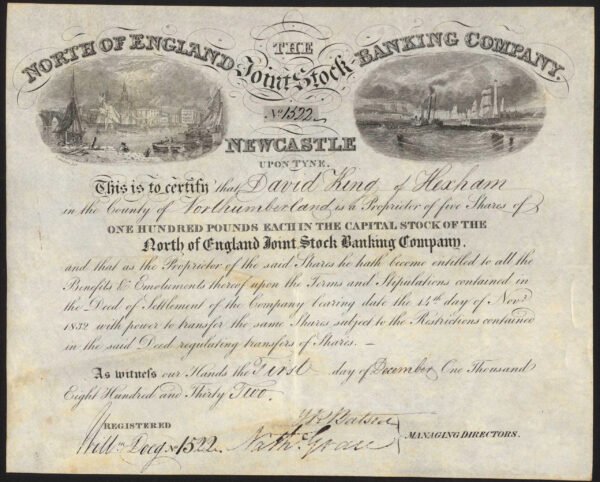 THE
NORTH OF ENGLAND Joint Stock BANKING COMPANY.
No. 1522
NEWCASTLE
UPON TYNE.
This is to certify that David King of Hexham
in the County of Northumberland is a Proprietor of five Shares of
ONE HUNDRED POUNDS EACH IN THE CAPITAL STOCK OF THE
North of England Joint Stock Banking Company.
and that as the Proprietor of the said Shares he hath become entitled to all the
Benefits & Emoluments thereof upon the Terms and Stipulations contained in
the Deed of Settlement of the Company bearing date the 14th day of Novr.
1832 with power to transfer the same Shares subject to the Restrictions contained
in the said Deed regulating transfers of Shares. —
As witness our Hands the First day of December One Thousand
Eight Hundred and Thirty Two.
REGISTERED
Willm Dogg No 1522
Nathl. Grace
MANAGING DIRECTORS.